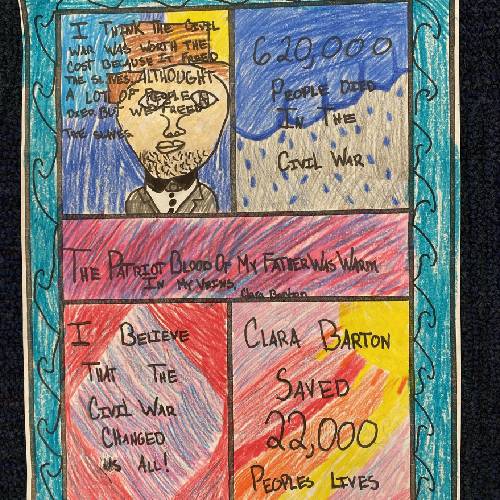 I THANK THE CIVIL
WAR WAS WORTH THE
COST BECAUSE IT FREED
THE SLAVES, ALTHOUGHT
A LOT OF PEOPLE
DIED BUT WE FREED
THE SLAVES
620,000
PEOPLE DIED
IN THE
CIVIL WAR
THE PATRIOT BLOOD OF MY FATHER WAS WARM
IN MY VEINS Clara Barton
I BELIEVE
THAT THE
CIVIL WAR
CHANGED
US ALL!
CLARA BARTON
SAVED
22,000
PEOPLES LIVES